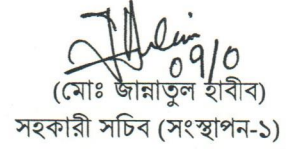 ০৭/০
(মোঃ জান্নাতুল হাবীব)
সহকারী সচিব (সংস্থাপন-১)